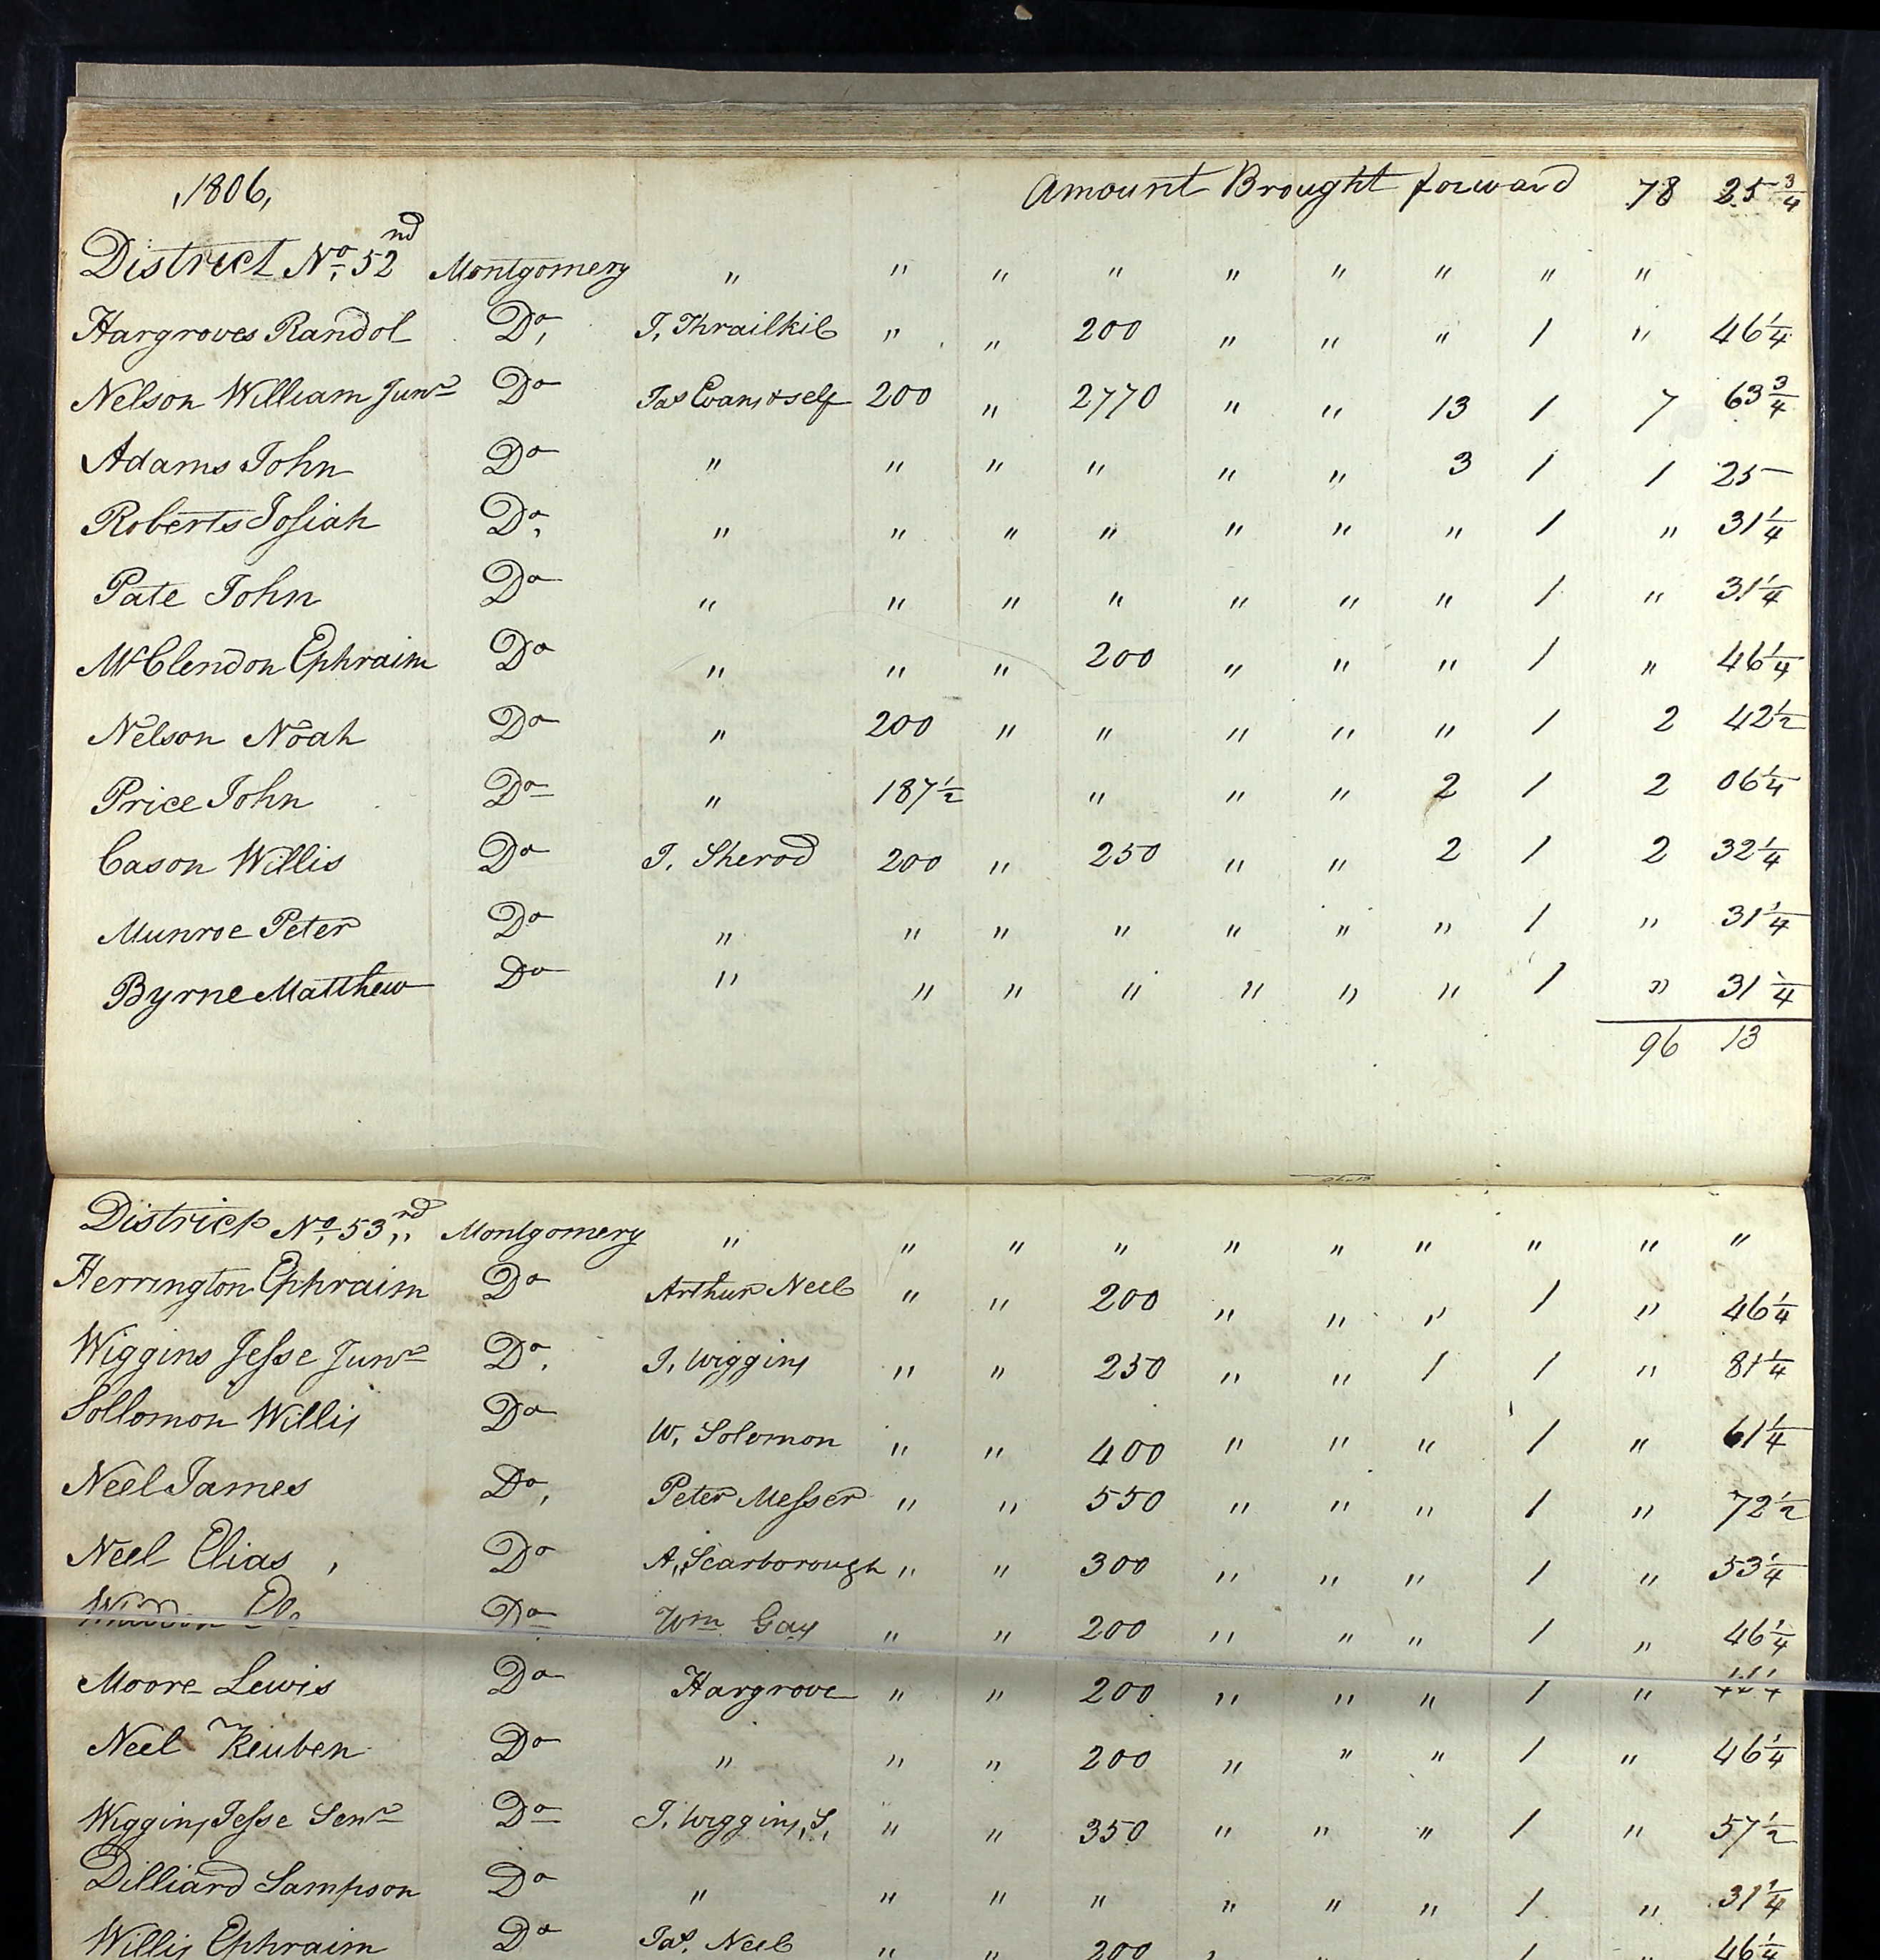 1806, Amount Brought forward 78 25 3/4
District No. 52nd Montgomery " " " " " " " " "
Hargroves Randol Do, J, Thrailkil " " 200 " " " 1 " 46 1/4
Nelson William Junr Do Jas Evans & self 200 " 2770 " " 13 1 7 63 3/4
Adams John Do " " " " " " 3 1 1 25
Roberts Josiah Do, " " " " " " " 1 " 31 1/4
Pate John Do " " " " " " " 1 " 31 1/4
McClendon Ephraim Do " " " 200 " " " 1 " 46 1/4
Nelson Noah Do " 200 " " " " " 1 2 42 1/2
Price John Do " 187 1/2 " " " 2 1 2 06 1/4
Cason Willis Do J, Sherod 200 " 250 " " 2 1 2 32 1/4
Munroe Peter Do " " " " " " " 1 " 31 1/4
Byrne Matthew Do " " " " " " " 1 " 31 1/4
96 13
District No. 53nd " Montgomery " " " " " " " " " "
Herrington Ephraim Do Arthur Neel " " 200 " " " 1 " 46 1/4
Wiggins Jesse Junr Do, J, Wiggins " " 250 " " 1 1 " 81 1/4
Sollomon Willis Do W, Solomon " " 400 " " " 1 " 61 1/4
Neel James Do, Peter Messer " " 550 " " " 1 " 72 1/2
Neel Elias , Do A, Scarborough " " 300 " " " 1 " 53 1/4
Do Wm Gay " " 200 " " " 1 " 46 1/4
Moore Lewis Do Hargrove " " 200 " " " 1 "
Neel Reuben Do " " " 200 " " " 1 " 46 1/4
Wiggins Jesse Senr Do J, Wiggins, S, " " 350 " " " 1 " 57 1/2
Dilliard Sampson Do " " " " " " " 1 " 31 1/4
Willis Ephraim Do Jas. Neel " " 200 1 46 1/4